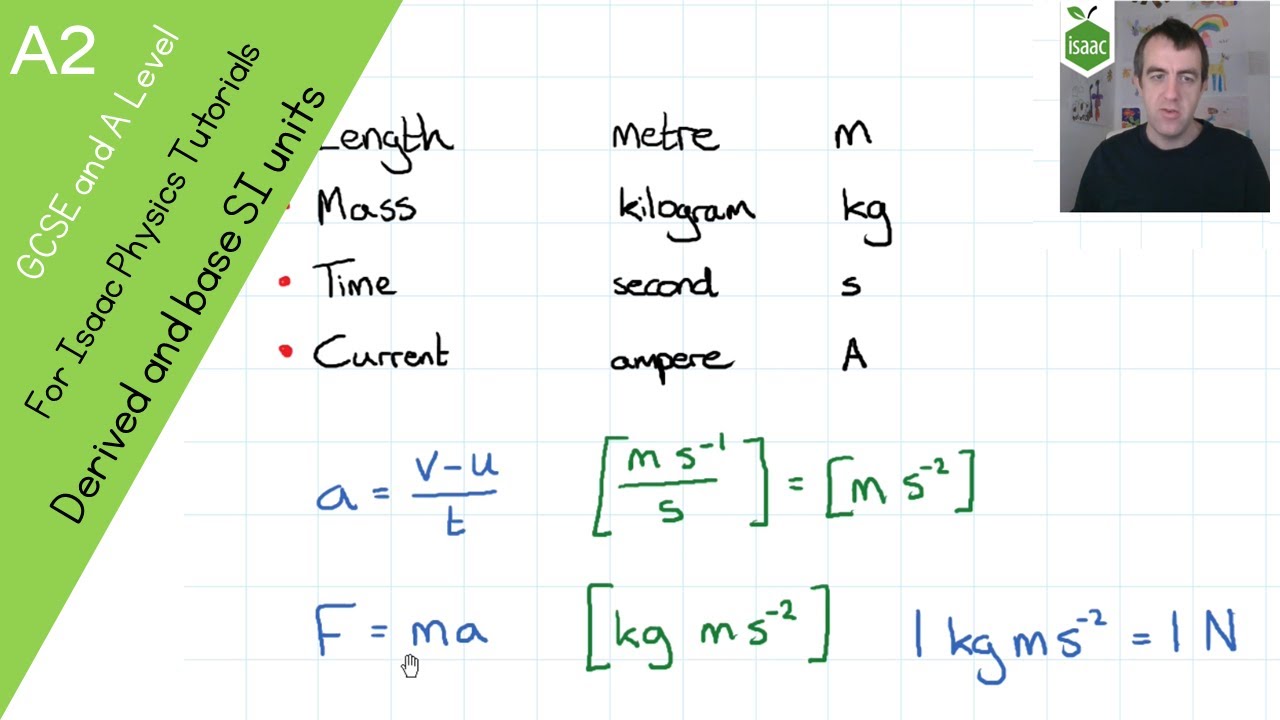 A2
GCSE and A Level
For Isaac Physics Tutorials
Derived and base SI units
isaac
Length metre m
Mass kilogram kg
Time second s
Current ampere A
a = v-u/t [m s⁻¹/s] = [m s⁻²]
F = ma [kg m s⁻²] 1 kg m s⁻² = 1 N